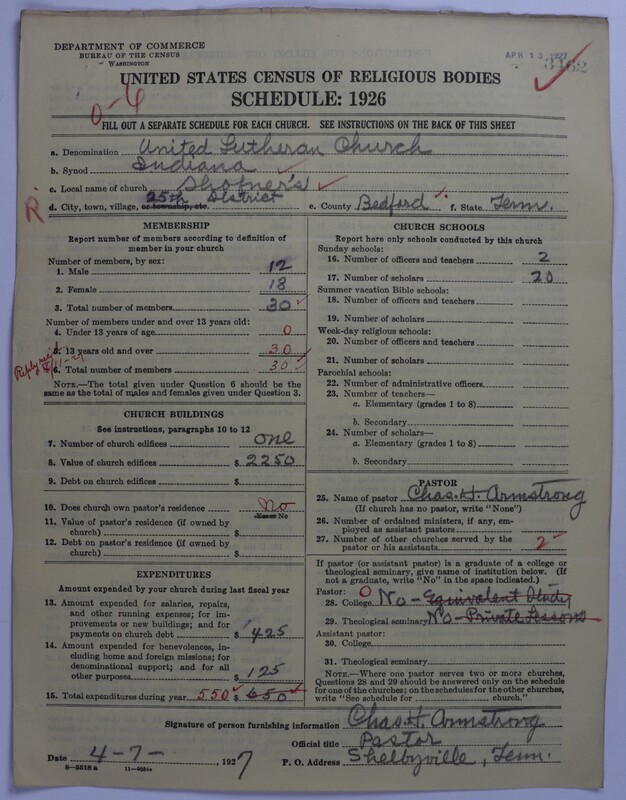 DEPARTMENT OF COMMERCE
BUREAU OF THE CENSUS
WASHINGTON
APR 13 1927
3162
UNITED STATES CENSUS OF RELIGIOUS BODIES
SCHEDULE: 1926
0-6
FILL OUT A SEPARATE SCHEDULE FOR EACH CHURCH. SEE INSTRUCTIONS ON THE BACK OF THIS SHEET
a. Denomination United Lutheran Church
b. Synod Indiana
c. Local name of church Shofner's
R.
d. City, town, village, or township, etc. 25th District e. County Bedford f. State Tenn.
MEMBERSHIP
Report number of members according to definition of
member in your church
Number of members, by sex:
1. Male 12
2. Female 18
3. Total number of members 30
Number of members under and over 13 years old:
4. Under 13 years of age 0
5. 13 years old and over 30
6. Total number of members 30
NOTE.—The total given under Question 6 should be
same as the total of males and females given under Question 3.
CHURCH BUILDINGS
See instructions, paragraphs 10 to 12
7. Number of church edifices one
8. Value of church edifices $ 2250
9. Debt on church edifices $
10. Does church own pastor's residence No
Yes or No
11. Value of pastor's residence (if owned by
church) $
12. Debt on pastor's residence (if owned by
church) $
EXPENDITURES
Amount expended by your church during last fiscal year
13. Amount expended for salaries, repairs,
and other running expenses; for im-
provements or new buildings; and for
payments on church debt $ 425
14. Amount expended for benevolences, in-
cluding home and foreign missions; for
denominational support; and for all
other purposes $ 125
15. Total expenditures during year 550 $ 650
CHURCH SCHOOLS
Report here only schools conducted by this church
Sunday schools:
16. Number of officers and teachers 2
17. Number of scholars 20
Summer vacation Bible schools:
18. Number of officers and teachers
19. Number of scholars
Week-day religious schools:
20. Number of officers and teachers
21. Number of scholars
Parochial schools:
22. Number of administrative officers
23. Number of teachers—
a. Elementary (grades 1 to 8)
b. Secondary
24. Number of scholars—
a. Elementary (grades 1 to 8)
b. Secondary
PASTOR
25. Name of pastor Chas. H. Armstrong
(If church has no pastor, write "None")
26. Number of ordained ministers, if any, em-
ployed as assistant pastors
27. Number of other churches served by the
pastor or his assistants 2
If pastor (or assistant pastor) is a graduate of a college or
theological seminary, give name of institution below. (If
not a graduate, write "No" in the space indicated.)
Pastor: 0
28. College No - Equivalent Study
29. Theological seminary No - Private Lessons
Assistant pastor:
30. College
31. Theological seminary
NOTE.—Where one pastor serves two or more churches,
Questions 28 and 29 should be answered only on the schedule
for one of the churches; on the schedules for the other churches,
write "See schedule for church."
Signature of person furnishing information Chas. H. Armstrong
Official title Pastor
Date 4-7-, 1927 P. O. Address Shelbyville, Tenn.
8-5518a